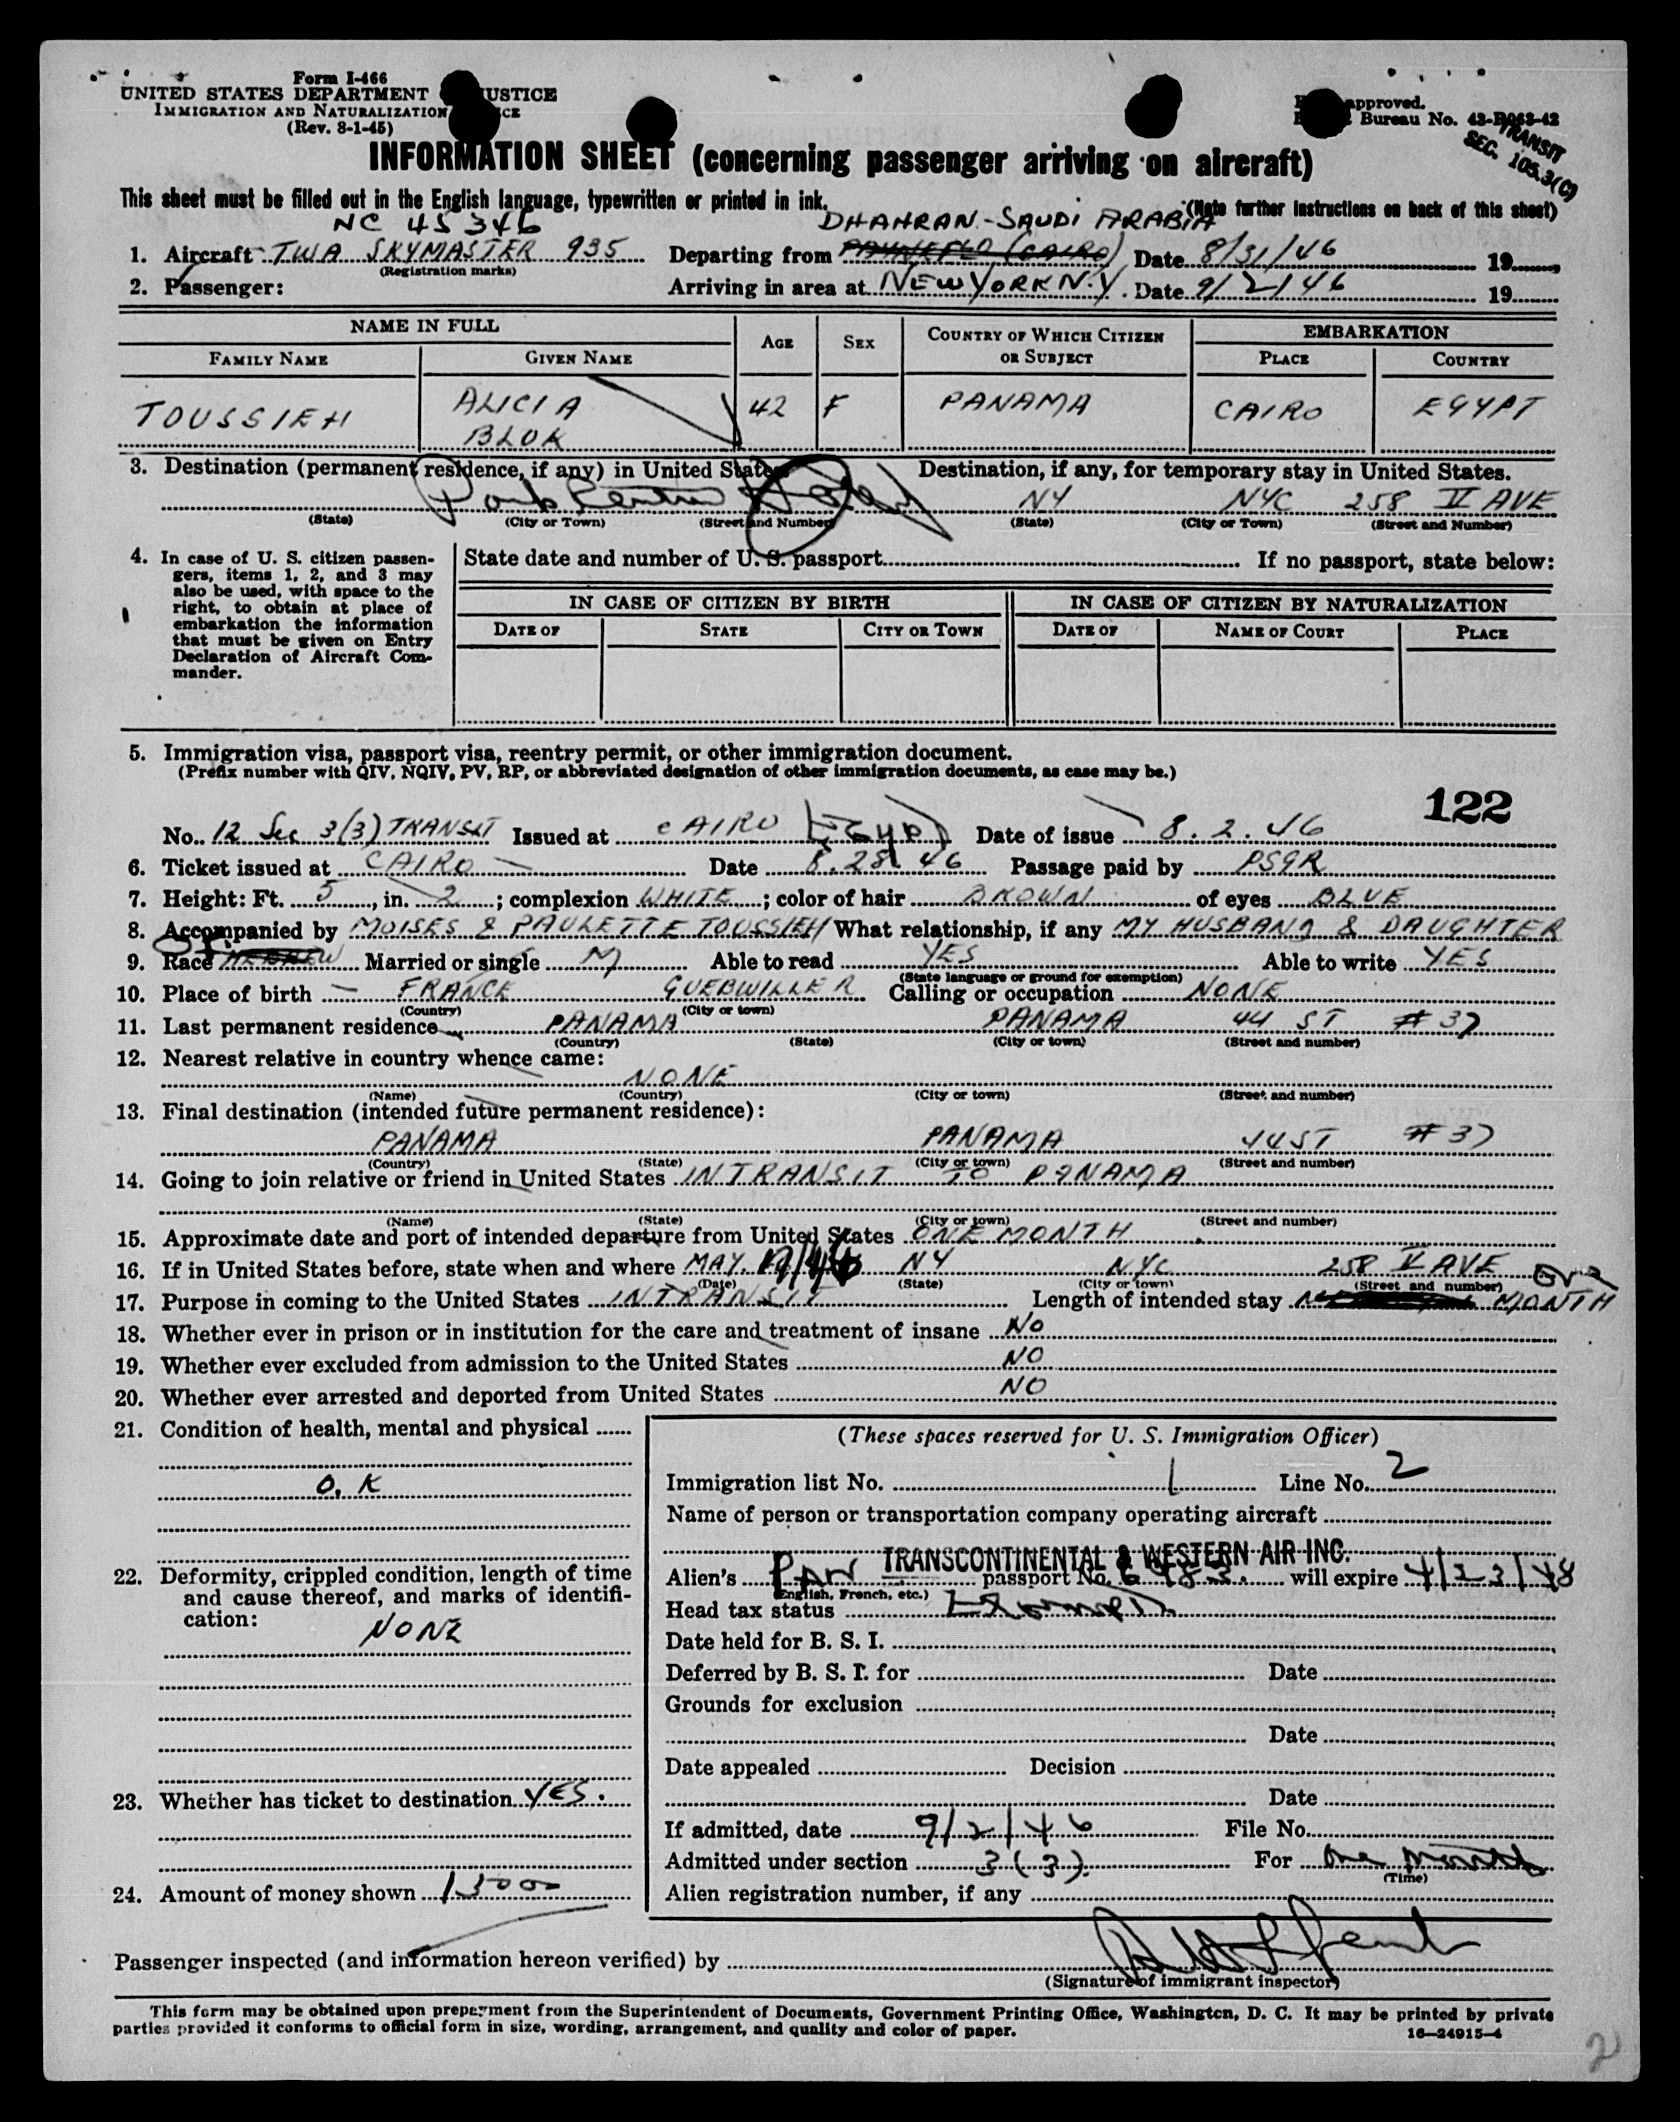 Form I-466
UNITED STATES DEPARTMENT USTICE
IMMIGRATION AND NATURALIZATION CE
(Rev. 8-1-45)
approved.
Bureau No. 43-R063-42
TRANSIT
SEC. 105.3(C)
INFORMATION SHEET (concerning passenger arriving on aircraft)
This sheet must be filled out in the English language, typewritten or printed in ink.
(Note further instructions on back of this sheet)
NC 45346 DHAHRAN-SAUDI ARABIA
1. Aircraft TWA SKYMASTER 935 Departing from (CAIRO) Date 8/31/46 19
(Registration marks)
2. Passenger: Arriving in area at NEW YORK N.Y. Date 9/2/46 19
NAME IN FULL AGE SEX COUNTRY OF WHICH CITIZEN OR SUBJECT EMBARKATION
FAMILY NAME GIVEN NAME PLACE COUNTRY
TOUSSIEH ALICIA 42 F PANAMA CAIRO EGYPT
BLOK
3. Destination (permanent residence, if any) in United States Destination, if any, for temporary stay in United States.
Park Central Hotel NY NYC 258 V AVE
(State) (City or Town) (Street and Number) (State) (City or Town) (Street and Number)
4. In case of U. S. citizen passengers, items 1, 2, and 3 may also be used, with space to the right, to obtain at place of embarkation the information that must be given on Entry Declaration of Aircraft Commander.
State date and number of U. S. passport If no passport, state below:
IN CASE OF CITIZEN BY BIRTH IN CASE OF CITIZEN BY NATURALIZATION
DATE OF STATE CITY OR TOWN DATE OF NAME OF COURT PLACE
5. Immigration visa, passport visa, reentry permit, or other immigration document.
(Prefix number with QIV, NQIV, PV, RP, or abbreviated designation of other immigration documents, as case may be.)
122
No. 12 Sec 3(3) TRANSIT Issued at CAIRO (Egypt) Date of issue 8.2.46
6. Ticket issued at CAIRO Date 8.28.46 Passage paid by PSGR
7. Height: Ft. 5, in. 2; complexion WHITE; color of hair BROWN of eyes BLUE
8. Accompanied by MOISES & PAULETTE TOUSSIEH What relationship, if any MY HUSBAND & DAUGHTER
9. Race HEBREW Married or single M Able to read YES Able to write YES
(State language or ground for exemption)
10. Place of birth FRANCE GUEBWILLER Calling or occupation NONE
(Country) (City or town)
11. Last permanent residence PANAMA PANAMA 44 ST # 37
(Country) (State) (City or town) (Street and number)
12. Nearest relative in country whence came:
NONE
(Name) (Country) (City or town) (Street and number)
13. Final destination (intended future permanent residence):
PANAMA PANAMA 44 ST # 37
(Country) (State) (City or town) (Street and number)
14. Going to join relative or friend in United States IN TRANSIT TO PANAMA
(Name) (State) (City or town) (Street and number)
15. Approximate date and port of intended departure from United States ONE MONTH
16. If in United States before, state when and where MAY NY NYC 258 V AVE
(Date) (State) (City or town) (Street and number)
17. Purpose in coming to the United States IN TRANSIT Length of intended stay One MONTH
18. Whether ever in prison or in institution for the care and treatment of insane No
19. Whether ever excluded from admission to the United States NO
20. Whether ever arrested and deported from United States NO
21. Condition of health, mental and physical
O.K
22. Deformity, crippled condition, length of time and cause thereof, and marks of identification:
NONE
23. Whether has ticket to destination YES.
24. Amount of money shown 1500
(These spaces reserved for U. S. Immigration Officer)
Immigration list No. 1 Line No. 2
Name of person or transportation company operating aircraft
TRANSCONTINENTAL & WESTERN AIR INC.
Alien's PAN passport No. 6983. will expire 4/23/48
(English, French, etc.)
Head tax status Exempt
Date held for B. S. I.
Deferred by B. S. I. for Date
Grounds for exclusion
Date
Date appealed Decision
Date
If admitted, date 9/2/46 File No.
Admitted under section 3(3). For One month
(Time)
Alien registration number, if any
Passenger inspected (and information hereon verified) by
(Signature of immigrant inspector)
This form may be obtained upon prepayment from the Superintendent of Documents, Government Printing Office, Washington, D. C. It may be printed by private
parties provided it conforms to official form in size, wording, arrangement, and quality and color of paper.
16—24915-4
2